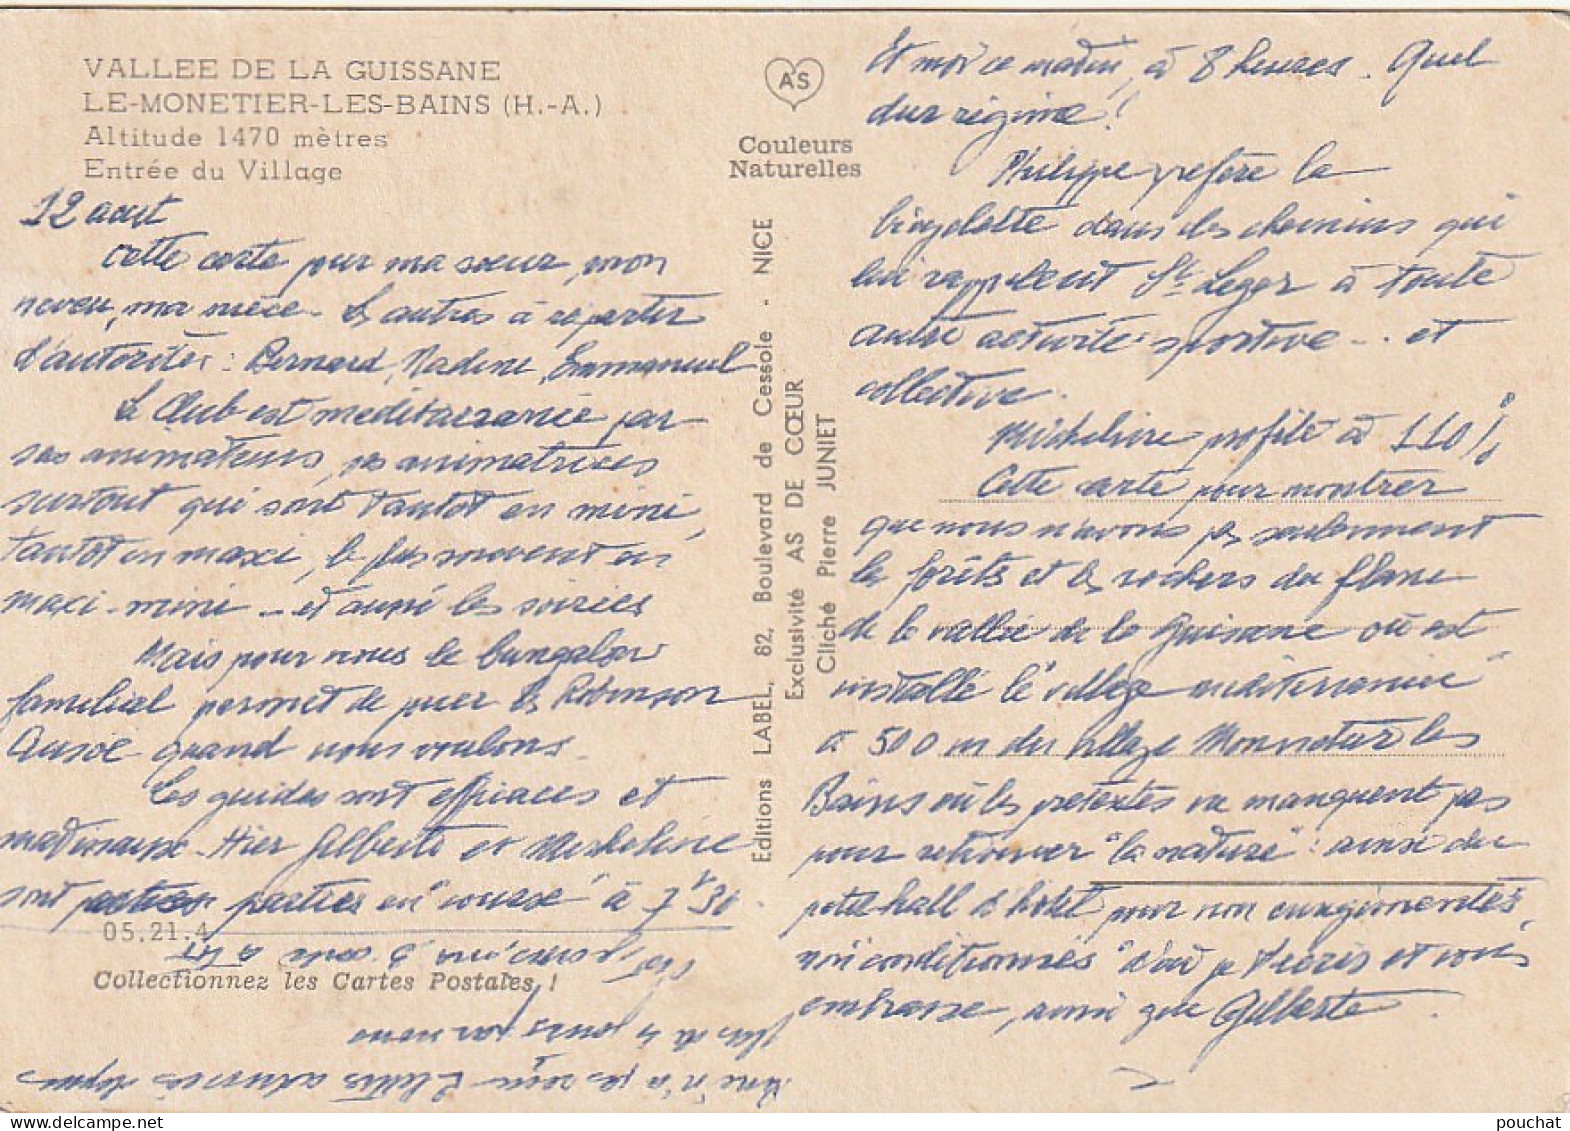 VALLEE DE LA GUISSANE
LE-MONETIER-LES-BAINS (H.-A.)
Altitude 1470 mètres
Entrée du Village
12 aout
Cette carte pour ma soeur, mon
neveu, ma nièce. Les autres à répartir
d'autorités : Bernard, Nadine, Emmanuel
Le Club est méditerranée par
ses animateurs, ses animatrices
surtout qui sont tantôt en mini,
tantôt en maxi, le plus souvent en
maxi-mini _ et aussi les soirées
Mais pour nous le bungalow
familial permet de jouer les Robinson
quand nous voulons.
Les guides sont efficaces et
matinaux. Hier Gilberte et Micheline
sont parties en "course" à 7h30.
05.21.4
Collectionnez les Cartes Postales !
AS
Couleurs
Naturelles
Editions LABEL, 82, Boulevard de Cessole - NICE
Exclusivité AS DE CŒUR
Cliché Pierre JUNIET
Et moi ce matin, à 8 heures. Quel
dur régime !
Philippe préfère la
bicyclette dans les chemins qui
lui rappelent St Leger à toute
autre activité sportive ... et
collective.
Micheline profite à 110%
Cette carte pour montrer
que nous n'avons pas seulement
les forêts et les rochers du flanc
de la vallée de la Guisane où est
installé le "village méditerranée"
à 500 m du village Monnetier les
Bains où les prétextes ne manquent pas
pour retrouver "la nature" : ainsi du
petit hall d'hôtel pour non
"d'où je t'écris et vous
embrasse, ainsi que Gilberte.